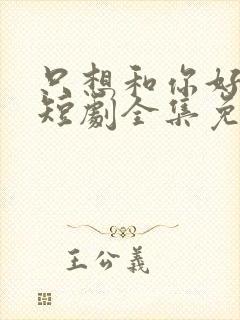 只想和你好
短劇全集免
王公義